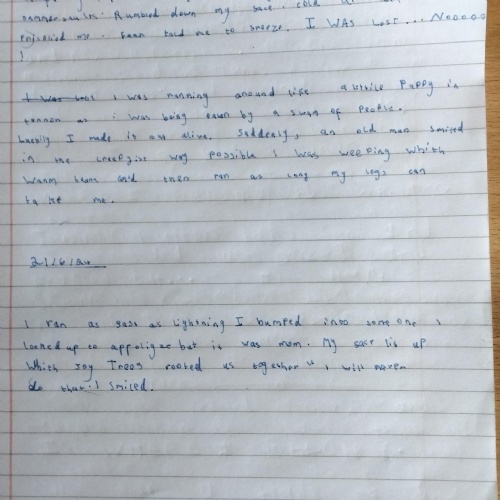 Rumbled down my face. cold
enjselted me. Fean told me to sneeze. I WAS Lost... Nooooo
!
I was running around like a little Puppy in
tannon as i was being eaten by a swan of People.
luckily I made it out alive. Suddenly, an old man smiled
in the creepyist way possible I was weeping which
warm tears and then ran as long my legs can
take me.
I ran as fast as lightning I bumped into some one I
looked up to appoligze but it was mom. My face lit up
which Joy Trees rooted us together " i will never
do that. I smiled.